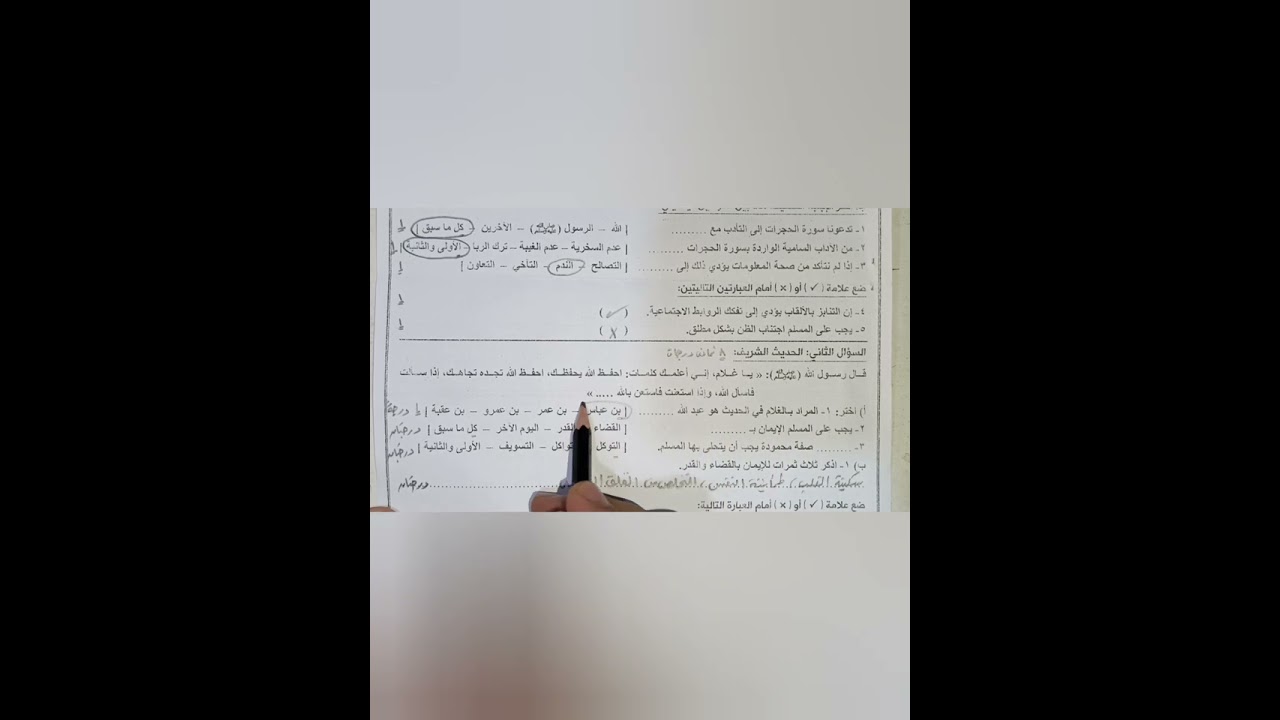 ١- تدعونا سورة الحجرات إلى التأدب مع ......... | الله – الرسول (ﷺ) – الآخرين – كل ما سبق | ١
٢- من الآداب السامية الواردة بسورة الحجرات ......... | عدم السخرية – عدم الغيبة – ترك الربا – الأولى والثانية | ١
٣- إذا لم نتأكد من صحة المعلومات يؤدي ذلك إلى ......... | التصالح – الندم – التآخي – التعاون | ١
ضع علامة ( ✓ ) أو ( × ) أمام العبارتين التاليتين:
٤- إن التنابز بالألقاب يؤدي إلى تفكك الروابط الاجتماعية. ( ✓ ) ١
٥- يجب على المسلم اجتناب الظن بشكل مطلق. ( × ) ١
السؤال الثاني: الحديث الشريف: ٨ ثمان درجات
قال رسول الله (ﷺ): « يا غلام، إني أعلمك كلمات: احفظ الله يحفظك، احفظ الله تجده تجاهك، إذا سألت
فاسأل الله، وإذا استعنت فاستعن بالله ..... »
أ) اختر: ١- المراد بالغلام في الحديث هو عبد الله ......... | بن عباس – بن عمر – بن عمرو – بن عقبة | ١ درجة
٢- يجب على المسلم الإيمان بـ ......... | القضاء القدر – اليوم الآخر – كل ما سبق | درجتان
٣- ......... صفة محمودة يجب أن يتحلى بها المسلم. | التوكل – التسويف – الأولى والثانية | درجتان
ب) ١- اذكر ثلاث ثمرات للإيمان بالقضاء والقدر.
سكينة القلب، طمأنينة النفس، التخلص من القلق ......... درجتان
ضع علامة ( ✓ ) أو ( × ) أمام العبارة التالية: